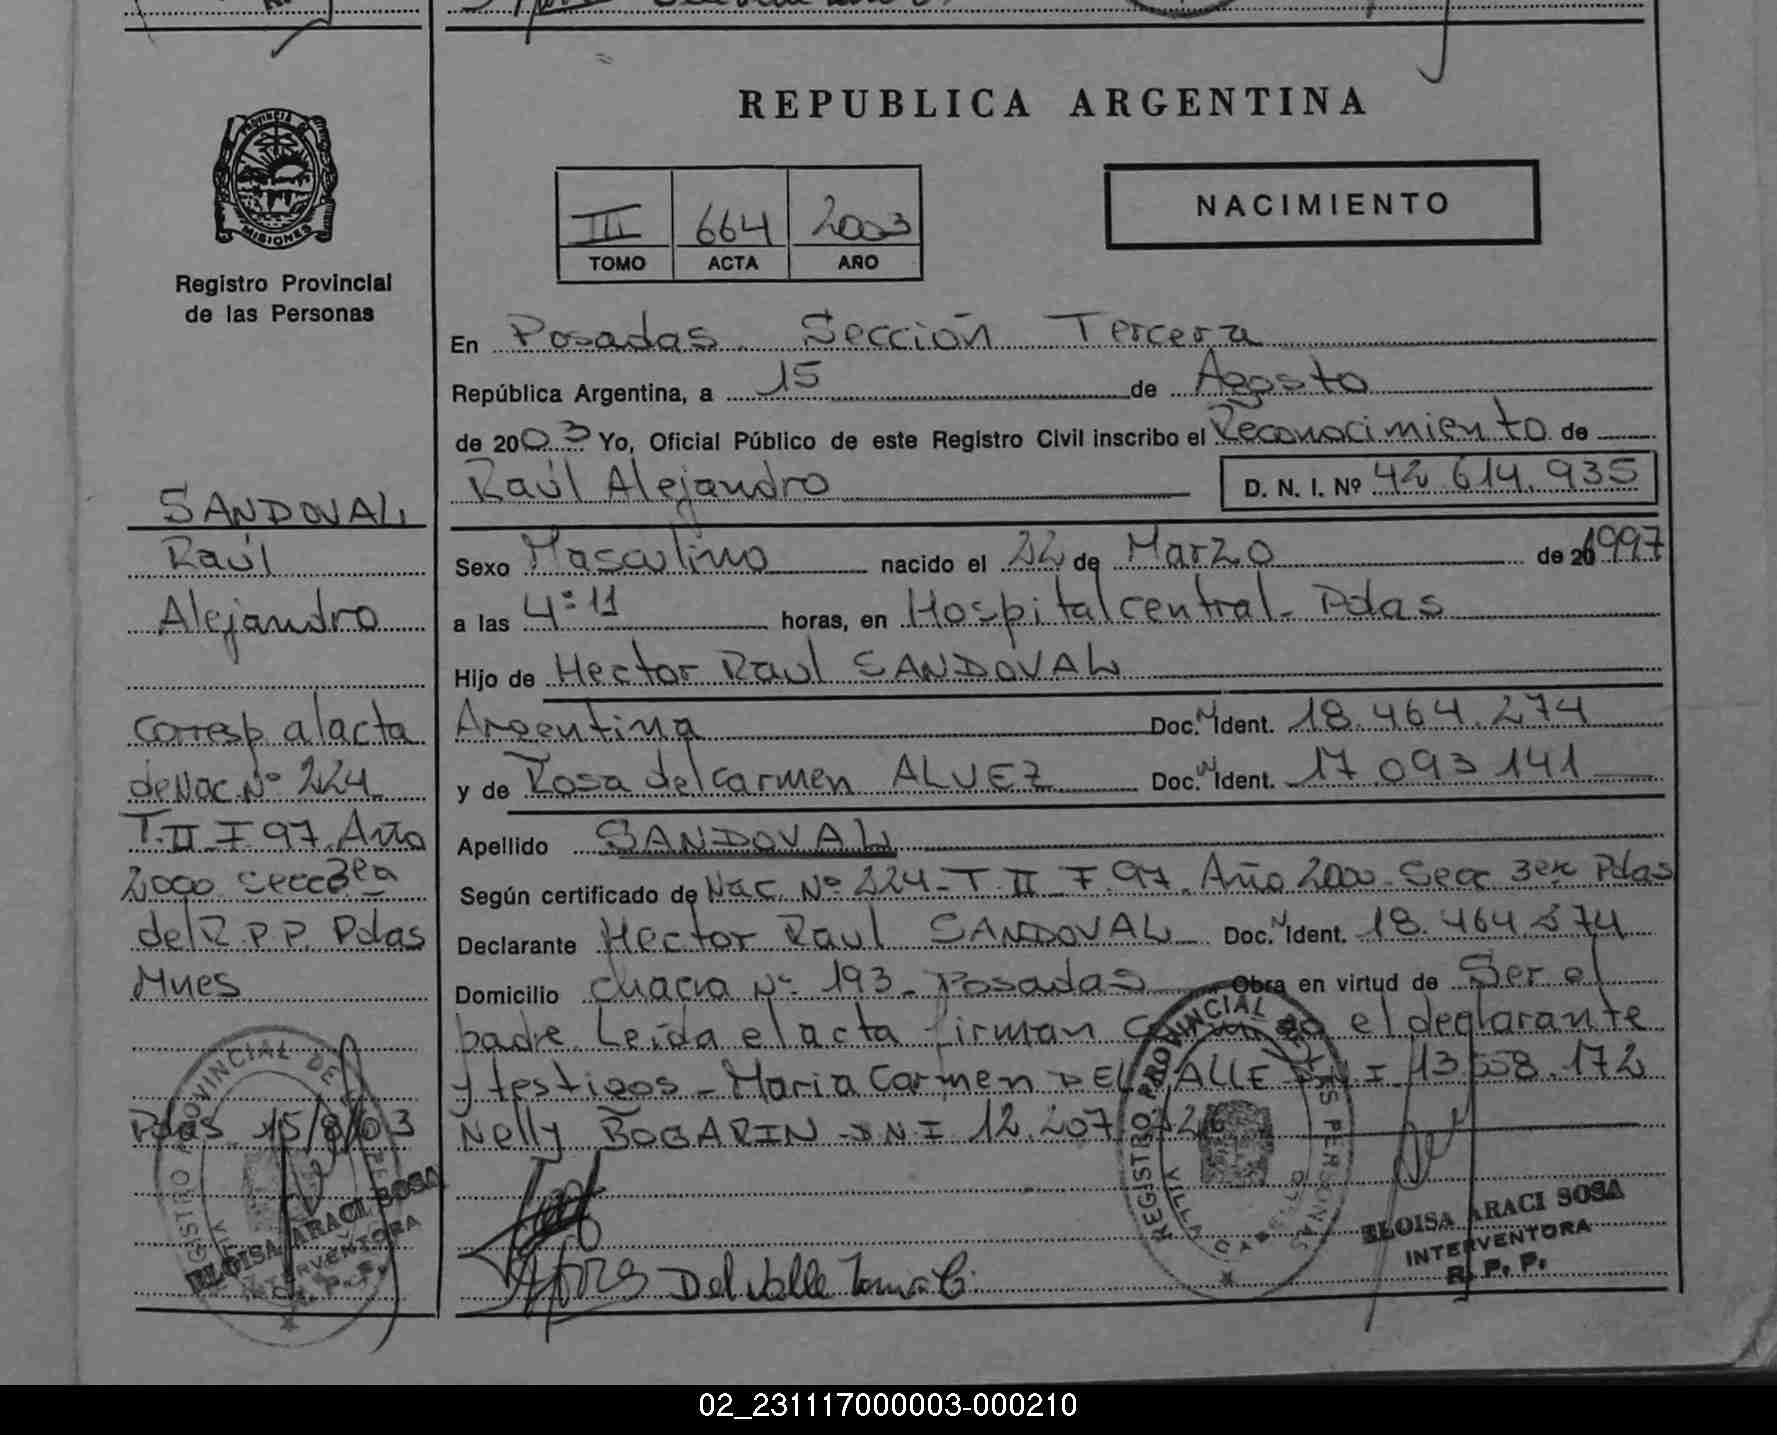 REPUBLICA ARGENTINA
PROVINCIA DE
MISIONES
Registro Provincial
de las Personas
III 664 2003
TOMO ACTA AÑO
NACIMIENTO
En Posadas. Sección Tercera
República Argentina, a 15 de Agosto
de 2003 Yo, Oficial Público de este Registro Civil inscribo el Reconocimiento de
Raúl Alejandro D. N. I. Nº 42 614.935
Sexo Masculino nacido el 22 de Marzo de 20 1997
a las 4:11 horas, en Hospital central - Pdas
Hijo de Hector Raul SANDOVAL
Argentina Doc. Ident. 18.464.274
y de Rosa del carmen ALVEZ Doc. Ident. 17 093 141
Apellido SANDOVAL
Según certificado de Nac. Nº 224-T.II-F.97. Año 2000. Secc 3era Pdas
Declarante Hector Raul SANDOVAL Doc. Ident. 18.464.274
Domicilio chacra Nº 193 - Posadas Obra en virtud de Ser el
padre. Leida el acta firman el declarante
y testigos - Maria Carmen DEL VALLE DNI 13 558.172
Nelly BOGARIN - DNI 12.207
Del Valle
SANDOVAL
Raúl
Alejandro
corresp al acta
de Nac. Nº 224
T. II - F 97. Año
2000 secc 3era
del R.P.P. Pdas
Mnes
Pdas 15/8/03
REGISTRO PROVINCIAL DE
ELOISA ARACI SOSA
INTERVENTORA
R. P. P.
REGISTRO PROVINCIAL DE LAS PERSONAS
VILLA CABELLO
ELOISA ARACI SOSA
INTERVENTORA
R. P. P.
02_231117000003-000210